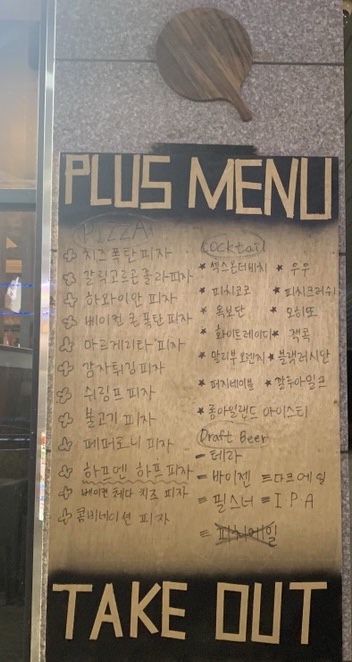 PLUS MENU
PIZZA
치즈 폭탄 피자
갈릭고르곤졸라피자
하와이안 피자
베이컨 콘폭탄 피자
마르게리타 피자
감자튀김 피자
쉬림프 피자
불고기 피자
페퍼로니 피자
하프엔 하프 피자
베이컨 체다 치즈 피자
콤비네이션 피자
Cocktail
★ 섹스온더비치 ★ 우우
★ 피치코코 ★ 피치크러쉬
★ 옥보단 ★ 모히또
★ 화이트레이디 ★ 잭콕
★ 말리부오렌지 ★ 블랙러시안
★ 퍼지네이블 ★ 깔루아밀크
★ 롱아일랜드 아이스티
Draft Beer
테라
바이젠 = 다크에일
= 필스너 = I P A
=
TAKE OUT